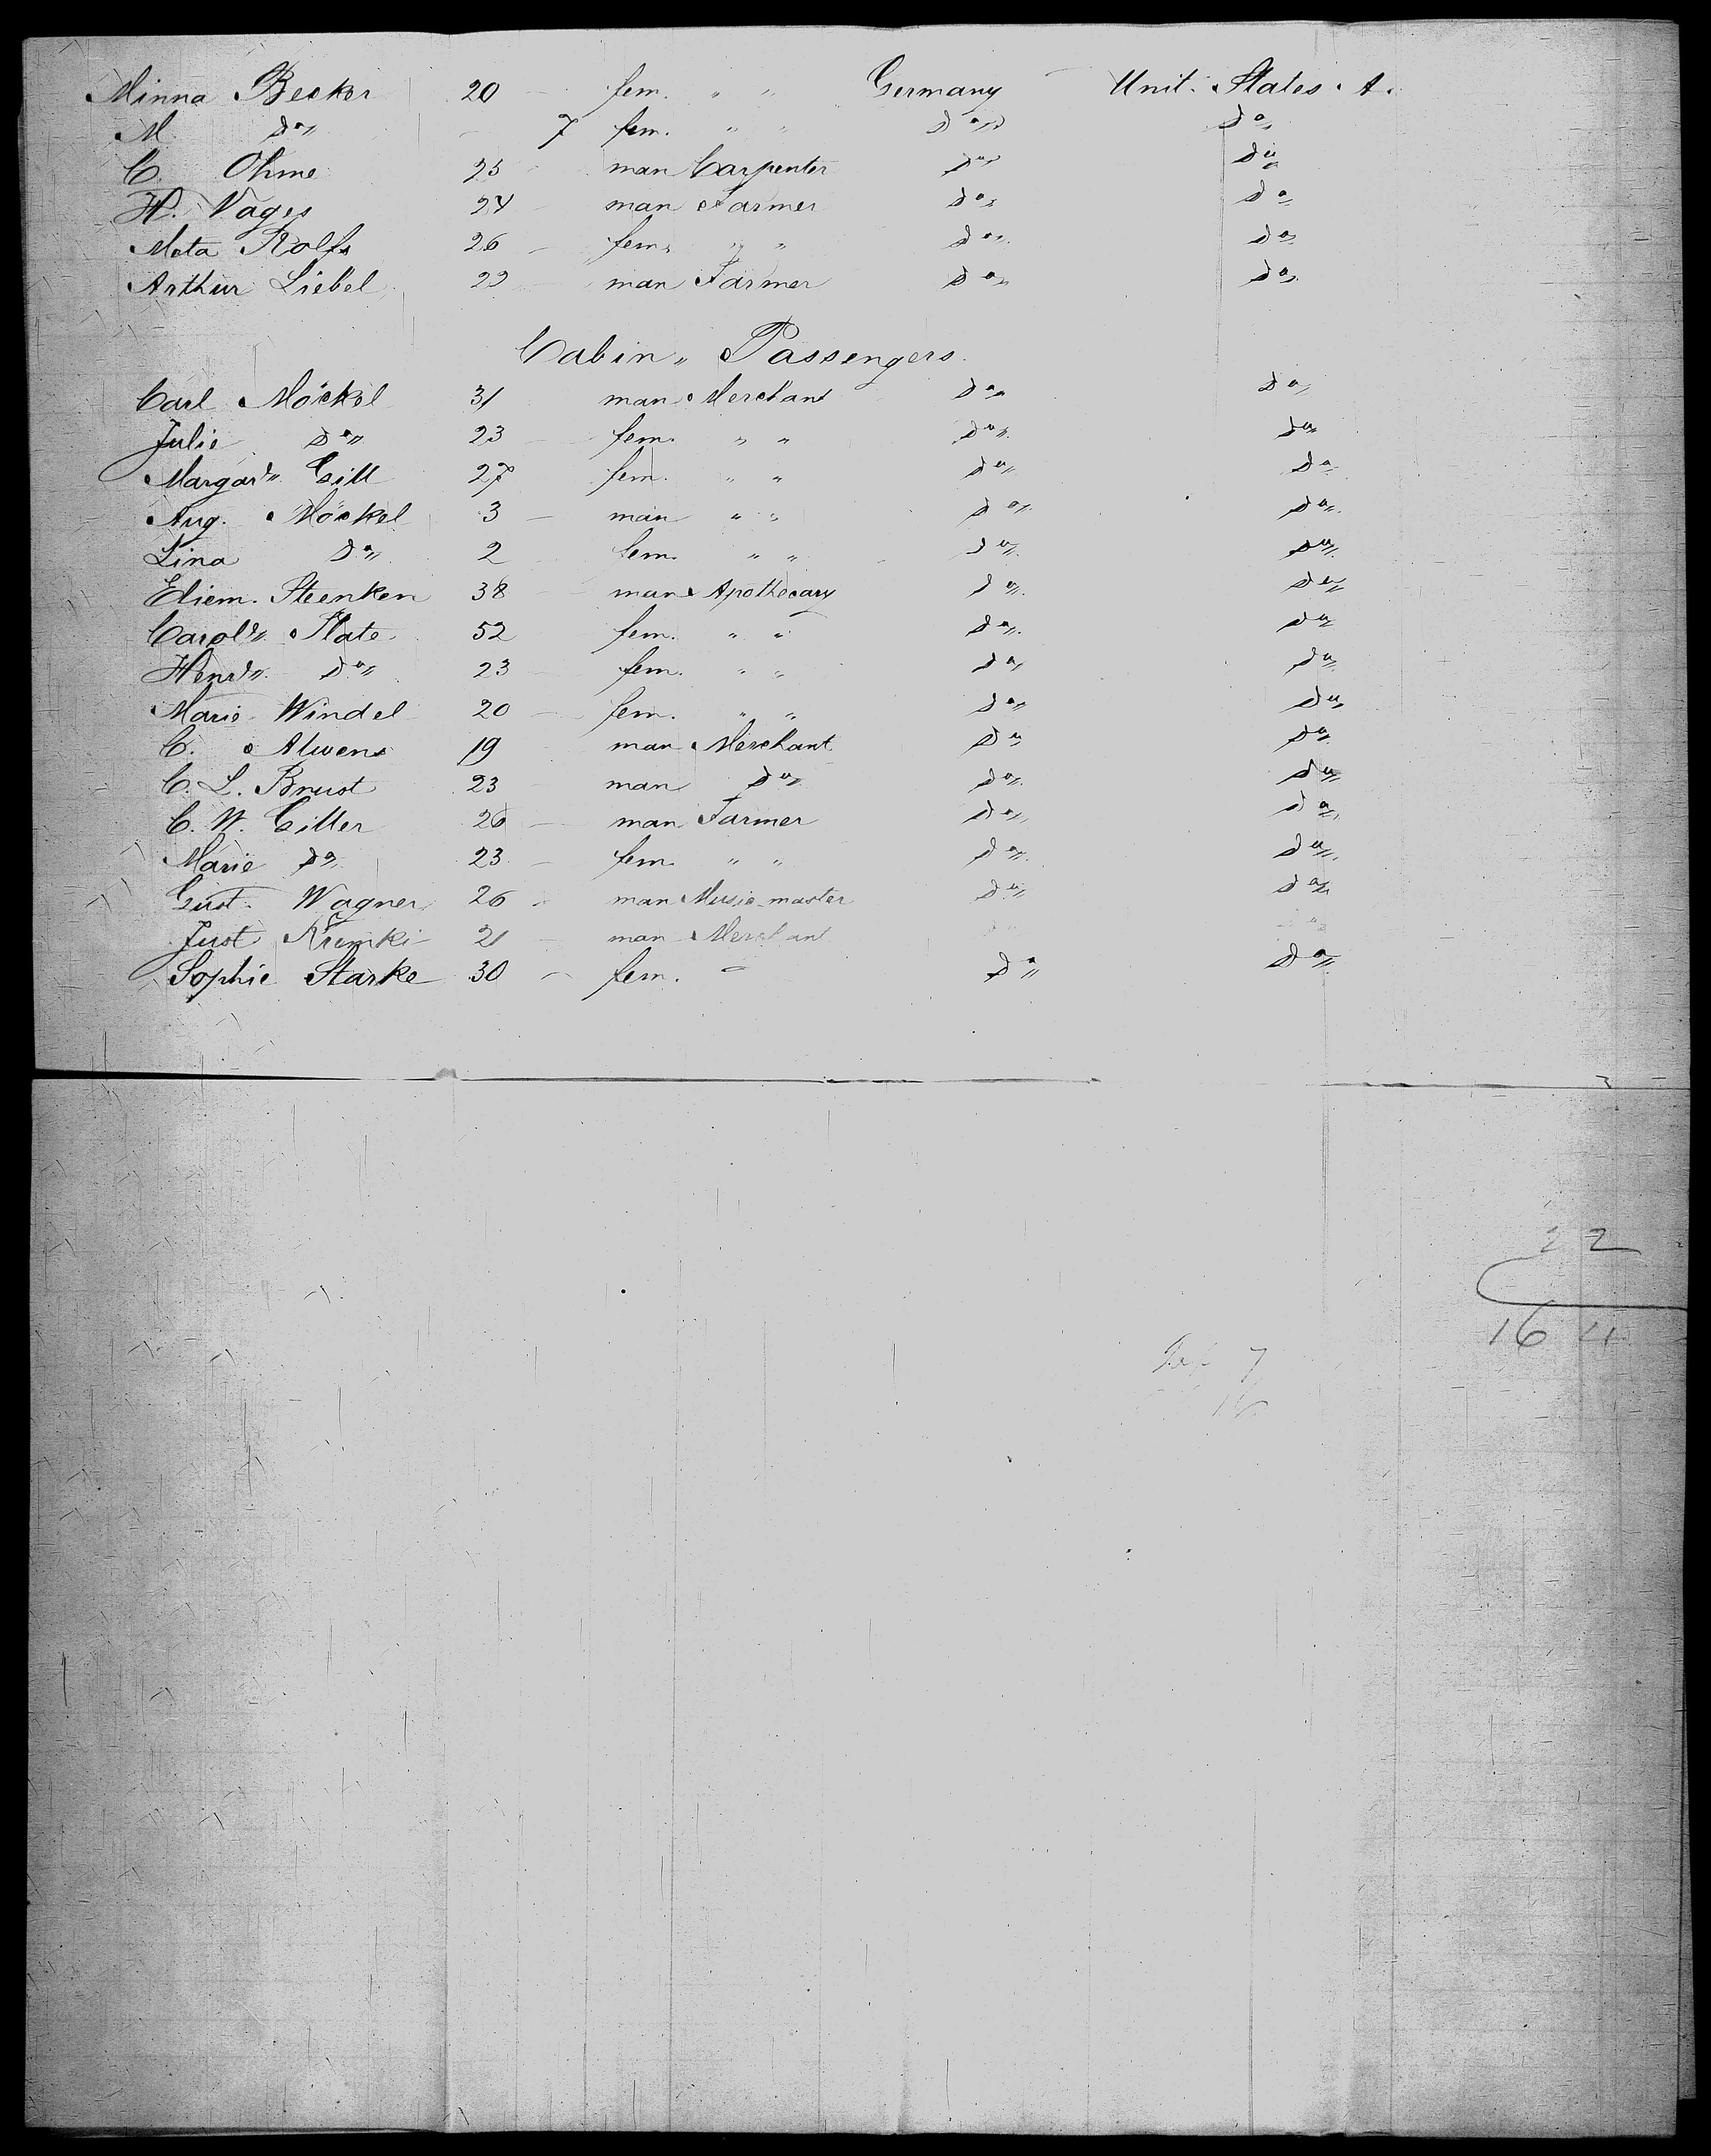 Minna Becker 20 fem. " " Germany Unit. States. A.
M do" 7 fem. " " do" do"
C. Ohme 25 man Carpenter do" do"
H. Vages 24 man Farmer do" do"
Meta Rolfs 26 fem. " " do" do"
Arthur Liebel 22 man Farmer do" do"
Cabin " Passengers.
Carl Möckel 31 man Merchant do" do"
Julie do" 23 fem. " " do" do"
Margar" Gill 27 fem. " " do" do"
Aug. Möckel 3 man " " do" do"
Lina do" 2 fem. " " do" do"
Eliem. Steenken 38 man Apothecary do" do"
Carol" Plate 52 fem. " " do" do"
Henr" do" 23 fem. " " do" do"
Marie Windel 20 fem. " " do" do"
C. Alwens 19 man Merchant do" do"
C. L. Brust 23 man do" do" do"
C. W. Giller 26 man Farmer do" do"
Marie do" 23 fem. " " do" do"
Gust. Wagner 26 man Music-master do" do"
Just 21 man Merchant do" do"
Sophie Starke 30 fem. " do" do"
22
16 4
7
16